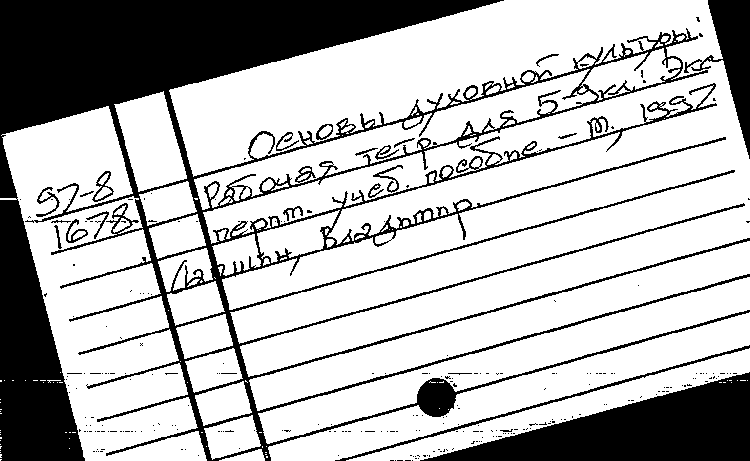 Основы духовной культуры:
97-8 Рабочая тетр. для 5-9 кл.: Экс-
1678 перим. учеб. пособие. - М., 1997.
Владимир.